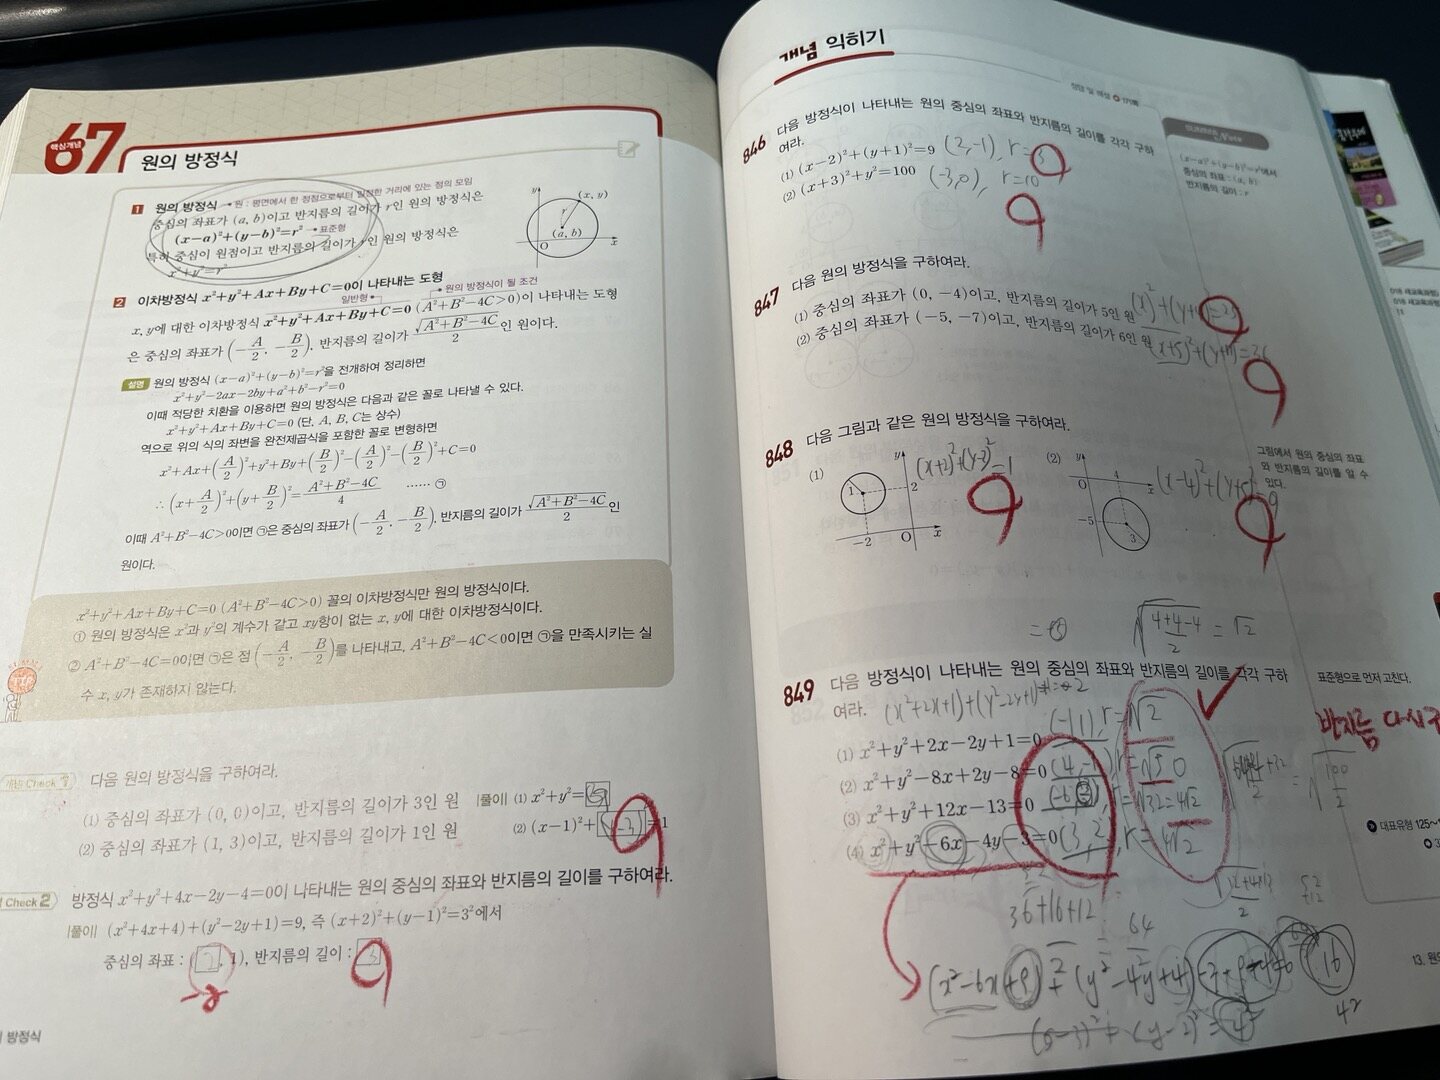 핵심개념 67 원의 방정식
1 원의 방정식 → 원 : 평면에서 한 정점으로부터 일정한 거리에 있는 점의 모임
중심의 좌표가 (a, b)이고 반지름의 길이가 r인 원의 방정식은
(x-a)²+(y-b)²=r² → 표준형
특히 중심이 원점이고 반지름의 길이가 r인 원의 방정식은
x²+y²=r²
y
(x, y)
r
(a, b)
O x
2 이차방정식 x²+y²+Ax+By+C=0이 나타내는 도형
일반형 원의 방정식이 될 조건
x, y에 대한 이차방정식 x²+y²+Ax+By+C=0 (A²+B²-4C>0)이 나타내는 도형
은 중심의 좌표가 (-A/2, -B/2), 반지름의 길이가 √(A²+B²-4C)/2인 원이다.
설명 원의 방정식 (x-a)²+(y-b)²=r²을 전개하여 정리하면
x²+y²-2ax-2by+a²+b²-r²=0
이때 적당한 치환을 이용하면 원의 방정식은 다음과 같은 꼴로 나타낼 수 있다.
x²+y²+Ax+By+C=0 (단, A, B, C는 상수)
역으로 위의 식의 좌변을 완전제곱식을 포함한 꼴로 변형하면
x²+Ax+(A/2)²+y²+By+(B/2)²-(A/2)²-(B/2)²+C=0
∴ (x+A/2)²+(y+B/2)²=(A²+B²-4C)/4 …… ㉠
이때 A²+B²-4C>0이면 ㉠은 중심의 좌표가 (-A/2, -B/2), 반지름의 길이가 √(A²+B²-4C)/2인
원이다.
TIP
x²+y²+Ax+By+C=0 (A²+B²-4C>0) 꼴의 이차방정식만 원의 방정식이다.
① 원의 방정식은 x²과 y²의 계수가 같고 xy항이 없는 x, y에 대한 이차방정식이다.
② A²+B²-4C=0이면 ㉠은 점 (-A/2, -B/2)를 나타내고, A²+B²-4C<0이면 ㉠을 만족시키는 실
수 x, y가 존재하지 않는다.
Check 다음 원의 방정식을 구하여라.
(1) 중심의 좌표가 (0, 0)이고, 반지름의 길이가 3인 원
(2) 중심의 좌표가 (1, 3)이고, 반지름의 길이가 1인 원
|풀이| (1) x²+y²=
(2) (x-1)²+ =1
Check 2 방정식 x²+y²+4x-2y-4=0이 나타내는 원의 중심의 좌표와 반지름의 길이를 구하여라.
|풀이| (x²+4x+4)+(y²-2y+1)=9, 즉 (x+2)²+(y-1)²=3²에서
중심의 좌표 : (2, 1), 반지름의 길이 : 3
-2
방정식
개념 익히기
정답 및 해설
846 다음 방정식이 나타내는 원의 중심의 좌표와 반지름의 길이를 각각 구하
여라.
(1) (x-2)²+(y+1)²=9 (2,-1), r=3
(2) (x+3)²+y²=100 (-3,0), r=10
(x-a)²+(y-b)²=r²에서
중심의 좌표 : (a, b)
반지름의 길이 : r
847 다음 원의 방정식을 구하여라.
(1) 중심의 좌표가 (0, -4)이고, 반지름의 길이가 5인 원
(2) 중심의 좌표가 (-5, -7)이고, 반지름의 길이가 6인 원
848 다음 그림과 같은 원의 방정식을 구하여라.
(1) y 1 2 -2 O x (x+2)²+(y-2)²=1
(2) y O 4 x -5 3 (x-4)²+(y+5)²=9
그림에서 원의 중심의 좌표
와 반지름의 길이를 알 수
있다.
√(4+4-4)/2 = √2
849 다음 방정식이 나타내는 원의 중심의 좌표와 반지름의 길이를 각각 구하
여라. (x²+2x+1)+(y²-2y+1)
표준형으로 먼저 고친다.
반지름 다시구
(1) x²+y²+2x-2y+1=0 (-1,1), r=√2
(2) x²+y²-8x+2y-8=0 (4,-1), r=√50
(3) x²+y²+12x-13=0 r=√32=4√2
(4) x²+y²-6x-4y-3=0 (3,2), r=4√2
대표유형 125~
36+16+12
64
(x²-6x+9)+(y²-4y+4)
16
42
(x-3)²+(y-2)²=4²
13. 원의